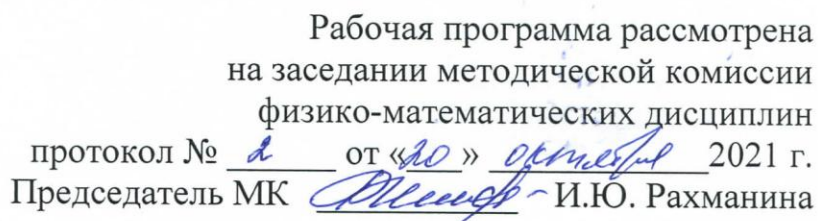 Рабочая программа рассмотрена
на заседании методической комиссии
физико-математических дисциплин
протокол № 2 от «20» октября 2021 г.
Председатель МК И.Ю. Рахманина